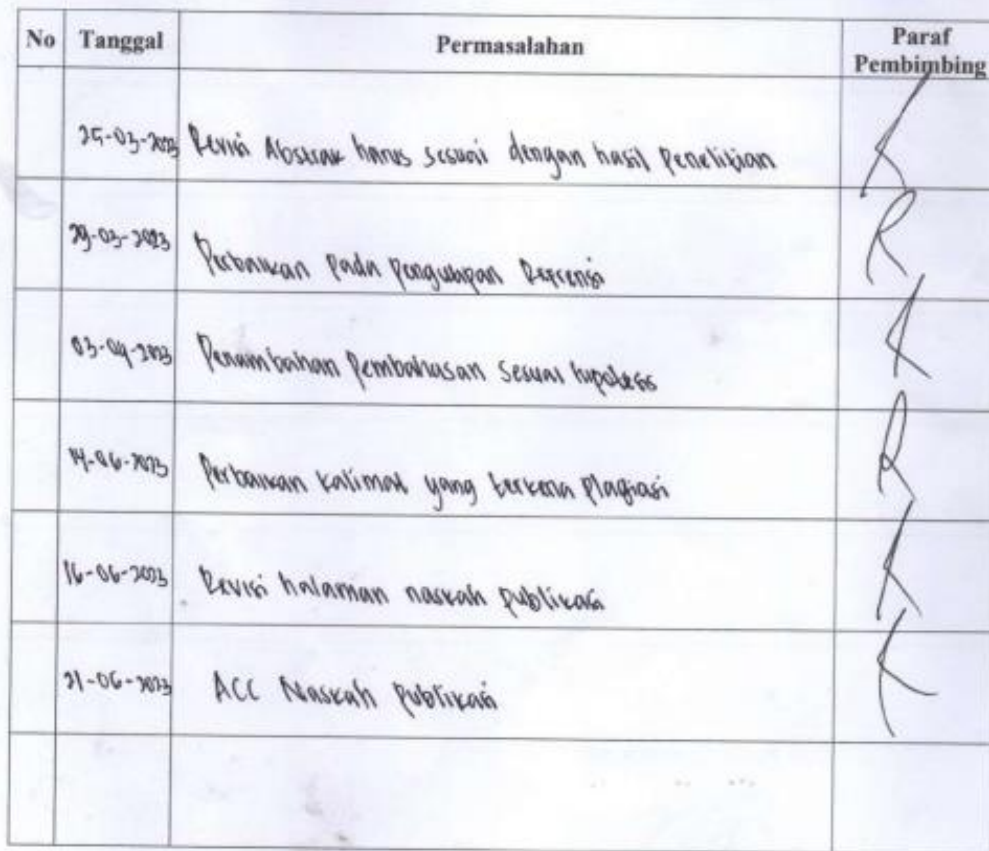 No Tanggal Permasalahan Paraf Pembimbing
25-03-2023 Revisi Abstrak harus sesuai dengan hasil Penelitian
29-03-2023 Perbaikan Pada Pengutipan Referensi
03-04-2023 Penambahan Pembahasan Sesuai hipotesis
14-06-2023 Perbaikan kalimat yang terkena Plagiasi
16-06-2023 Revisi halaman naskah publikasi
21-06-2023 ACC Naskah Publikasi